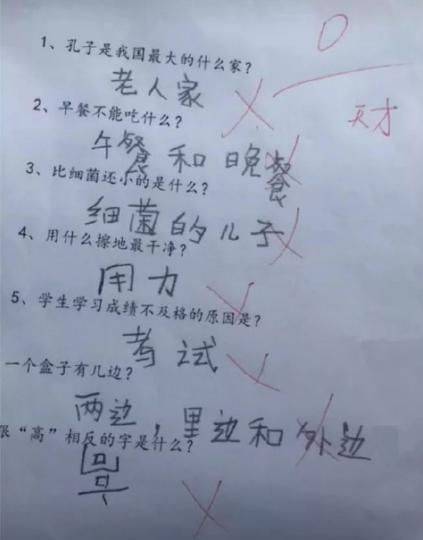 0
1、孔子是我国最大的什么家？
老人家
天才
2、早餐不能吃什么？
午餐和晚餐
3、比细菌还小的是什么？
细菌的儿子
4、用什么擦地最干净？
用力
5、学生学习成绩不及格的原因是？
考试
一个盒子有几边？
两边，里边和外边
跟“高”相反的字是什么？